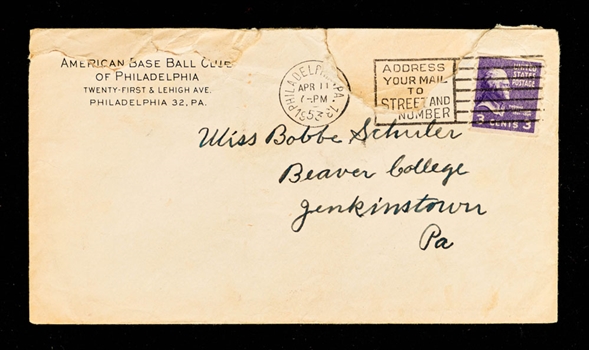 AMERICAN BASE BALL CLUB
OF PHILADELPHIA
TWENTY-FIRST & LEHIGH AVE.
PHILADELPHIA 32, PA.
PHILADELPHIA, PA.
APR 11
7-PM
1953
ADDRESS
YOUR MAIL
TO
STREET AND
NUMBER
UNITED
STATES
POSTAGE
3 CENTS 3
Miss Bobbe Schuler
Beaver College
Jenkinstown
Pa